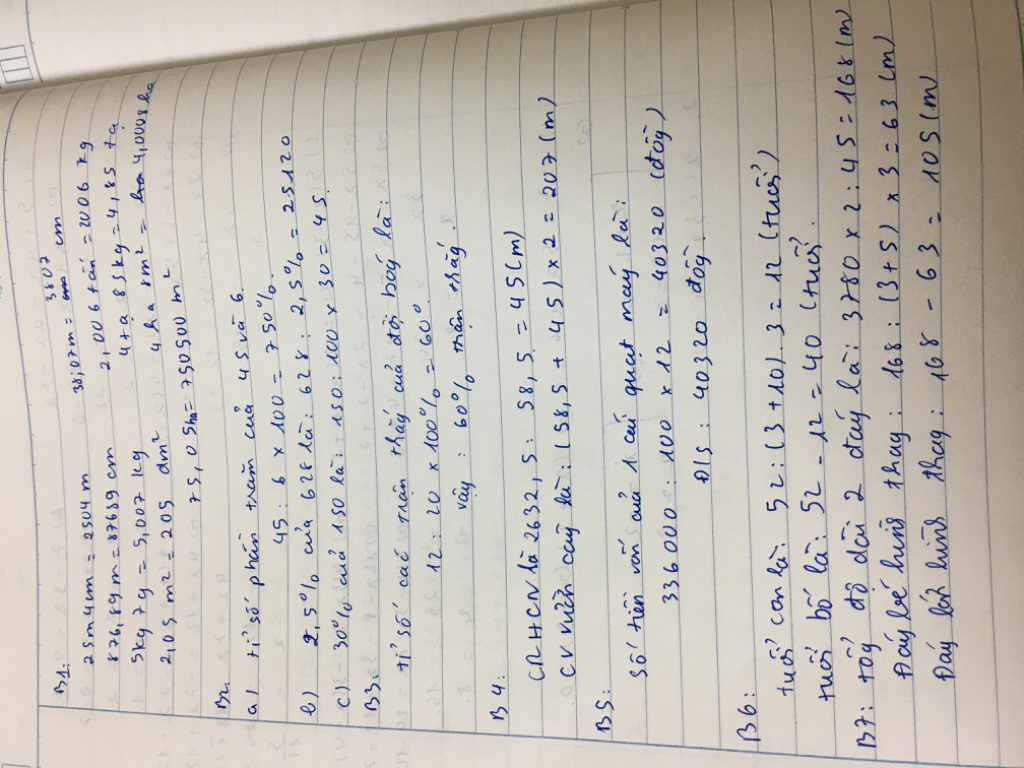 B1:
25m 4cm = 2504 m
38,07m = 3807 cm
876,89m = 87689 cm
2,006 tấn = 2006 kg
5kg 7g = 5,007 kg
4 tạ 85kg = 4,85 tạ
2,05 m² = 205 dm²
4 ha 8m² = 4,0008 ha
75,05ha = 750500 m²
B2:
a) tỉ số phần trăm của 45 và 6.
45 : 6 x 100 = 750%.
b) 2,5% của 628 là : 628 : 2,5% = 25120
c) 30% của 150 là : 150 : 100 x 30 = 45.
B3:
tỉ số các trận thắng của đội bóng là:
12 : 20 x 100% = 60%
vậy : 60% trận thắng.
B4:
CRHCN là 2632,5 : 58,5 = 45 (m)
CV vườn cây là : (58,5 + 45) x 2 = 207 (m)
B5:
Số tiền vốn của 1 cái quạt máy là:
336000 : 100 x 12 = 40320 (đồng)
Đ/S : 40320 đồng.
B6:
tuổi con là : 52 : (3 + 10) . 3 = 12 (tuổi)
tuổi bố là : 52 - 12 = 40 (tuổi).
B7: tổng độ dài 2 đáy là : 3780 x 2 : 45 = 168 (m)
Đáy bé hình thang : 168 : (3+5) x 3 = 63 (m)
Đáy lớn hình thang : 168 - 63 = 105 (m)